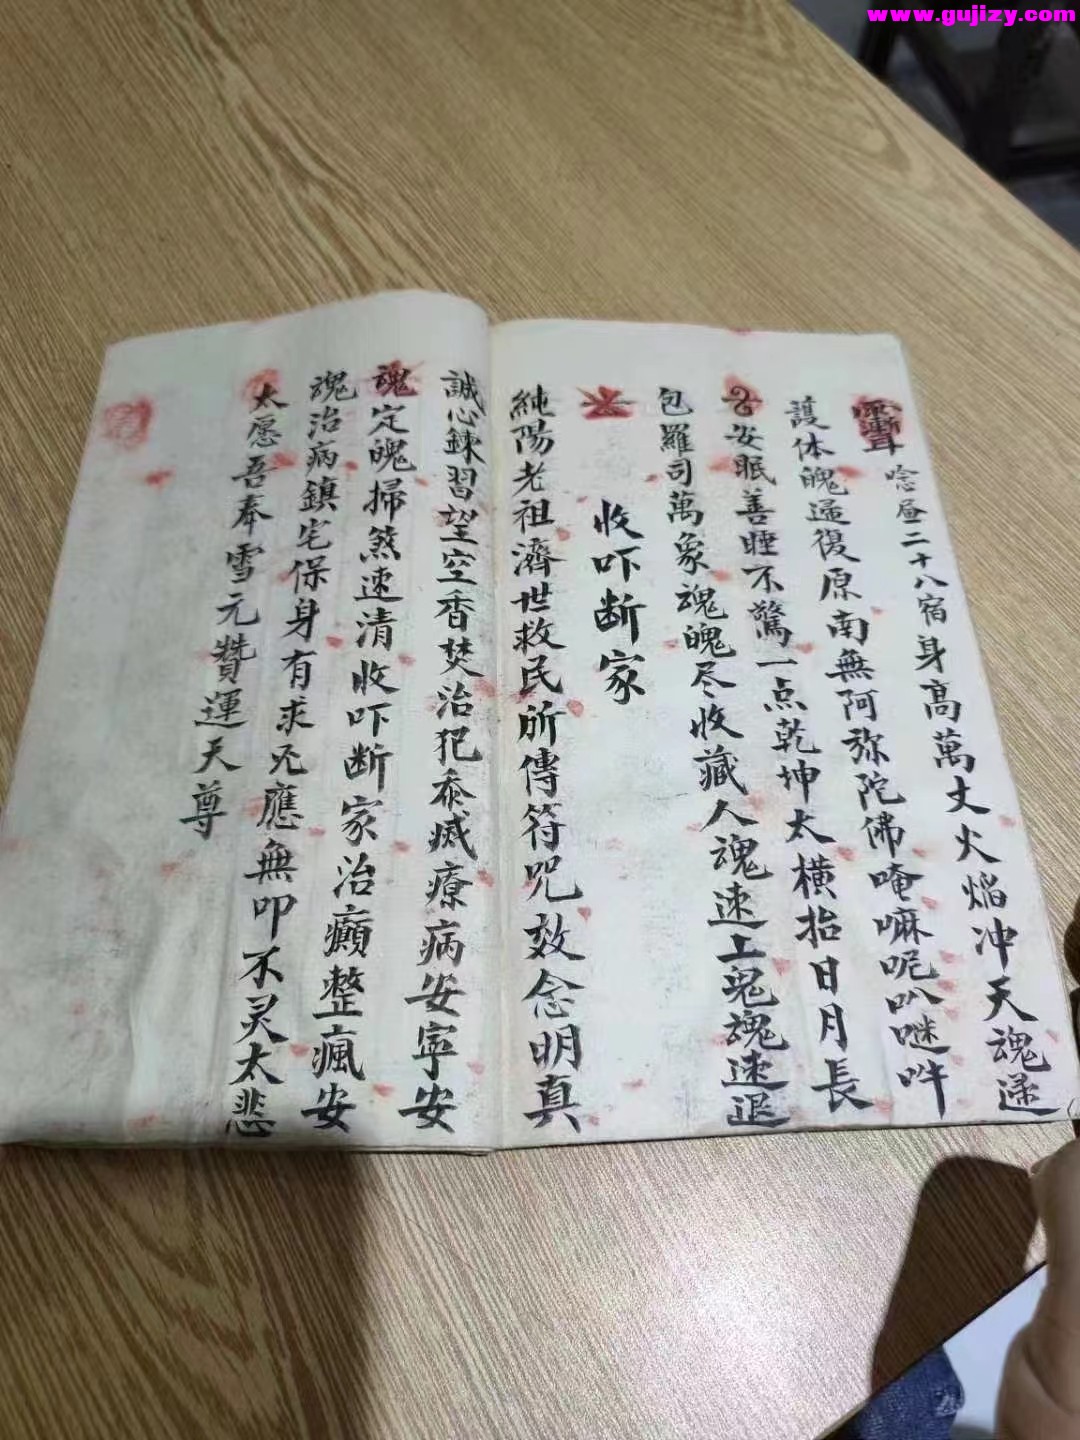 www.gujizy.com
唸㫥二十八宿身高萬丈火焰冲天魂遥
護体魄遥復原南無阿弥陀佛唵嘛呢叭𠺗吽
安眠善睡不驚一点乾坤太横抬日月長
包羅司萬象魂魄尽收藏人魂速上鬼魂速退
收吓断家
純陽老祖濟世救民所傳符咒效念明真
誠心鍊習望空香焚治犯忝烕療病安寜安
魂定魄掃煞速清收吓断家治癲整瘋安
魂治病鎮宅保身有求旡應無叩不灵太悲
太愿吾奉雪元贊運天尊